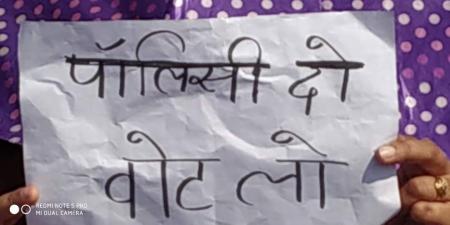 पॉलिसी दो
वोट लो
REDMI NOTE 5 PRO
MI DUAL CAMERA